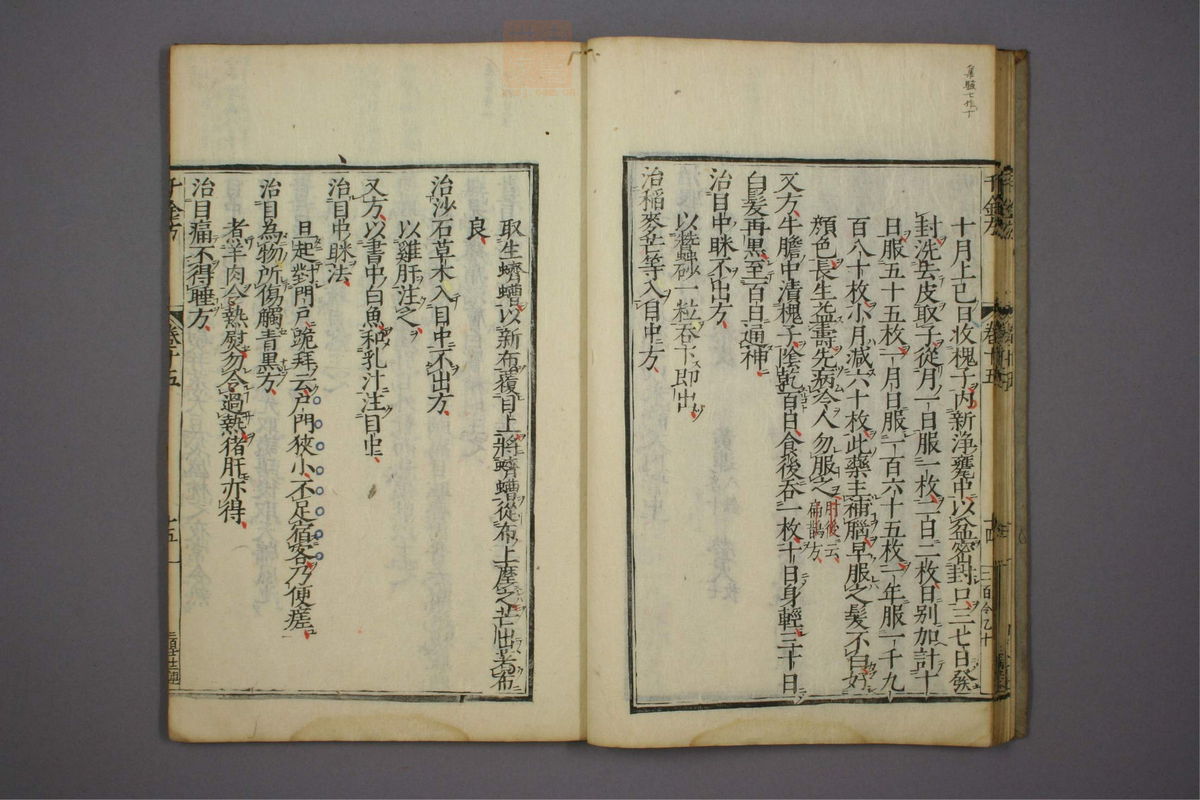 十月上巳日收槐子內新淨甕中以盆密封口三七日發
封洗去皮取子從月一日服一枚二日二枚日別加計十
日服五十五枚一月日服一百六十五枚一年服一千九
百八十枚小月減六十枚此藥主補腦早服之髮不白好
顏色長生益壽先病冷人勿服之肘後云扁鵲方
又方牛膽中漬槐子陰乾百日食後吞一枚十日身輕三十日
白髮再黑至百日通神
治目中眯不出方
以蠶砂一粒吞下即出
治稻麥芒等入目中方
取生蠐螬以新布覆目上將蠐螬從布上摩之芒出著布
良
治沙石草木入目中不出方
以雞肝注之
又方以書中白魚和乳汁注目中
治目中眯法
旦起對門戶跪拜云戶門狹小不足宿客乃便瘥
治目為物所傷觸青黑方
煮羊肉令熱熨勿令過熱猪肝亦得
治目痛不得睡方
千金方 卷十五 十五